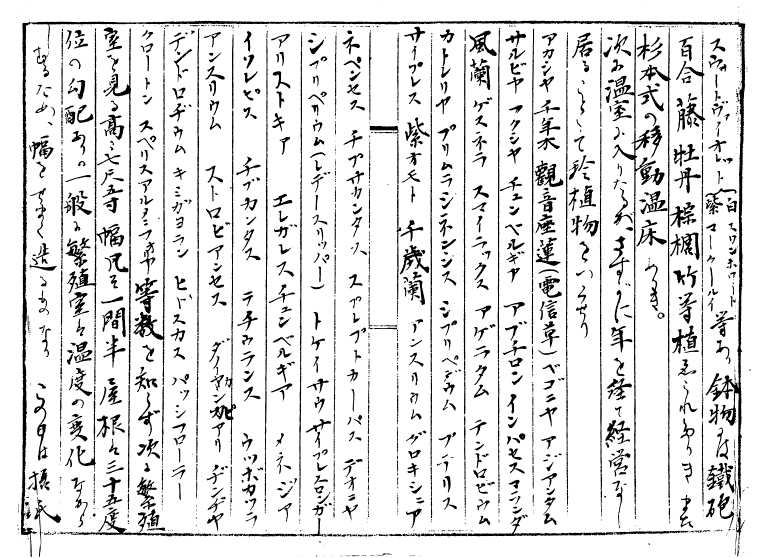 スウートヴァイオレット(白 スワンホワート 紫 マークールイ 等あり 鉢物には鐵砲
百合 藤 牡丹 棕櫚竹等植ゑられありき また
杉本式の移動温床ありき。
次に温室に入りたるが、さすがに年を経て経営なし
居ることとて珍植物をいろせり
アカシヤ 千年木 觀音座蓮(電信草)ベゴニヤ アジアンタム
サルビヤ フクシヤ チュンベルギヤ アブチロン インパセス マランダ
風蘭 ゲスネラ スマイラックス アゲラタム デンドロビウム
カトレリヤ プリムラシネンシス シプリペヂウム プテリス
サイプレス 紫オモト 千歳蘭 アンスリウム グロキシニア
ネペンセス チプサカンダス スプレプトカーパス デオニヤ
シプリペリウム(レデースリッパー)トケイサウ サイプレスロンガー
アリストキア エレガレス チュンベルギア メネジア
イソレピス チブカンタス ラチウランス ウツボカヅラ
アンスリウム ストロビアンセス ダイヤンカピアリ デンヂヤ
デンドロヂウム キミガヨラン ヒドスカス パッシフローラー
クロートン スペリスアルメニフオ 等數を知らず 次に繁殖
室を見る高さ七尺五寸 幅凡そ一間半 屋根は三十五度
位の勾配あり。一般に繁殖室は温度の變化なから
しむるため、幅をせまく造るものなり この日は